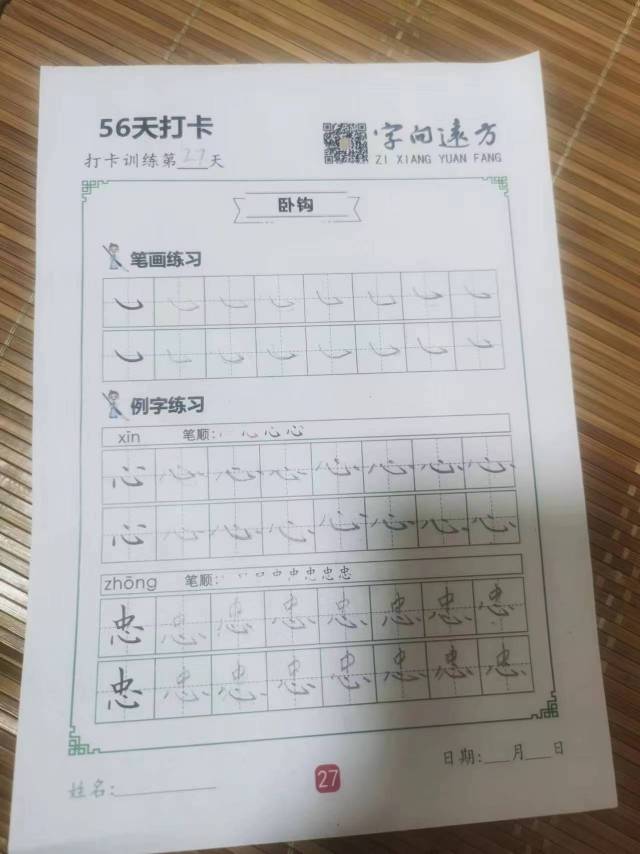 56天打卡
字向远方
打卡训练第27天
ZI XIANG YUAN FANG
卧钩
笔画练习
例字练习
xīn 笔顺: 心心
心心心心心心心心
心心心心心心心心
zhōng 笔顺: 丶口口中中忠忠忠
忠忠忠忠忠忠忠忠
忠忠忠忠忠忠忠忠
日期:___月___日
27
姓名: